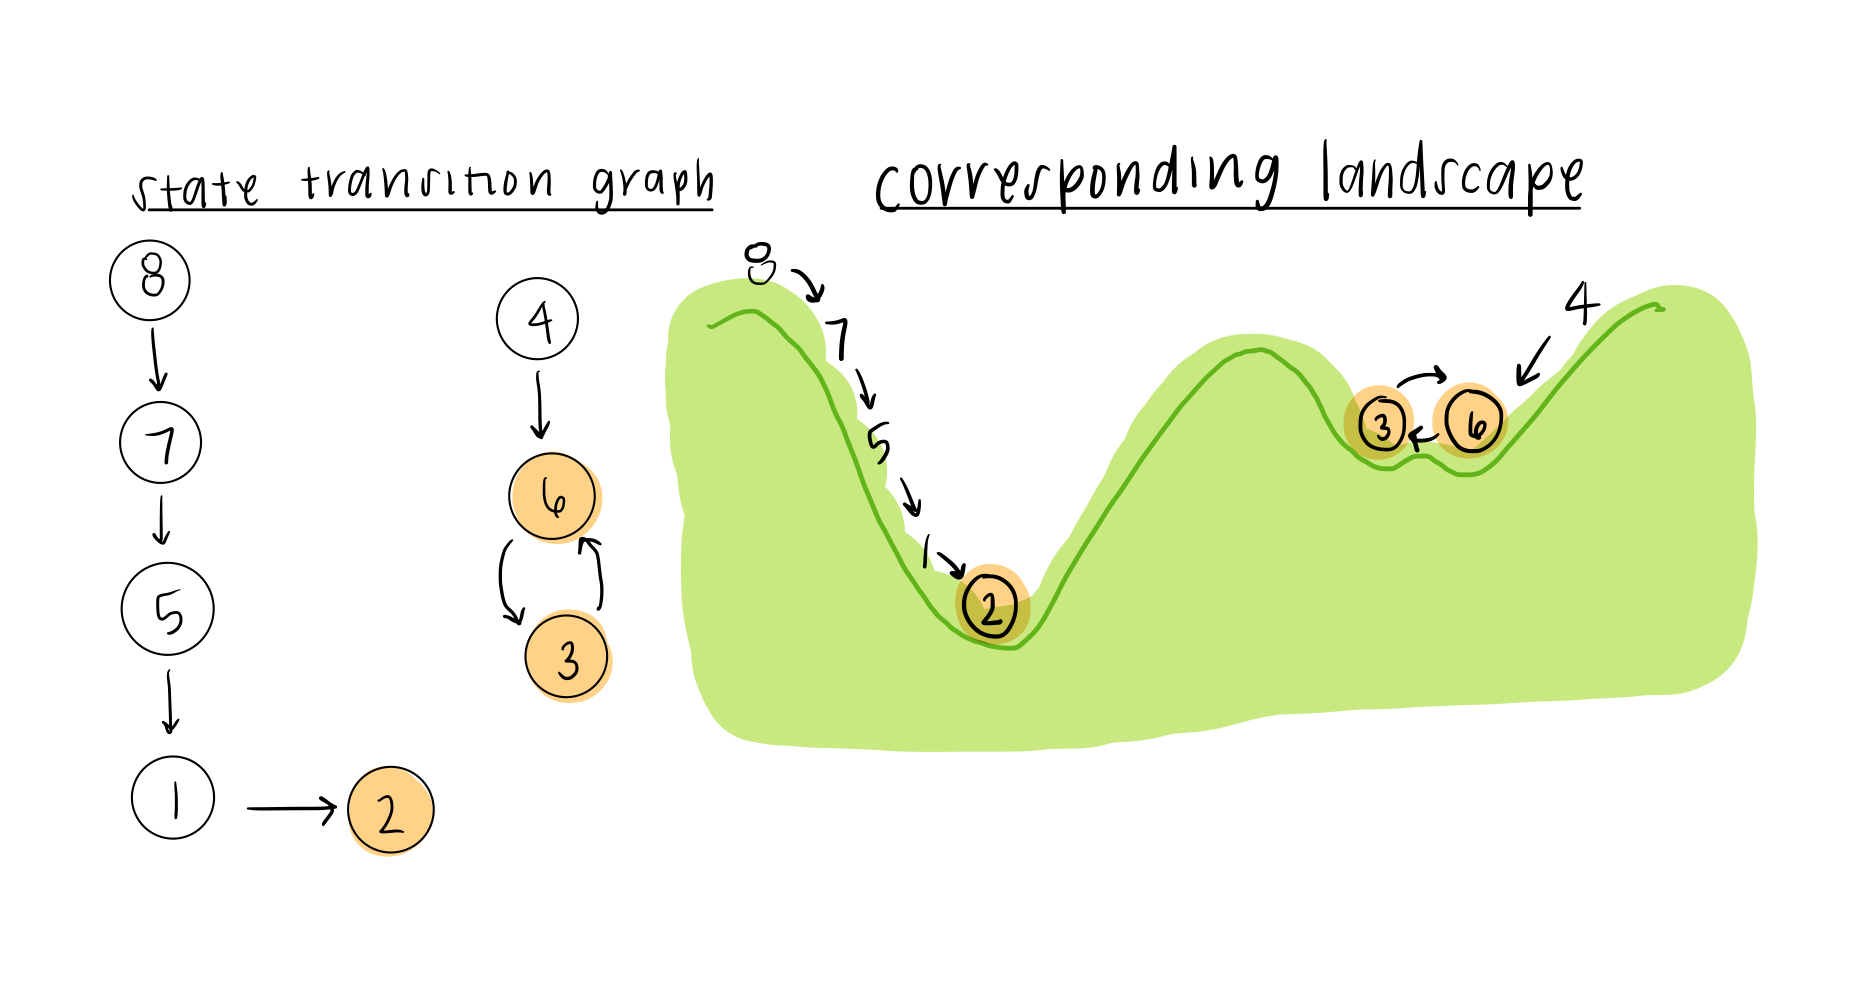 state transition graph
8
7
5
1
2
4
6
3
corresponding landscape
8
7
5
1
2
3
6
4